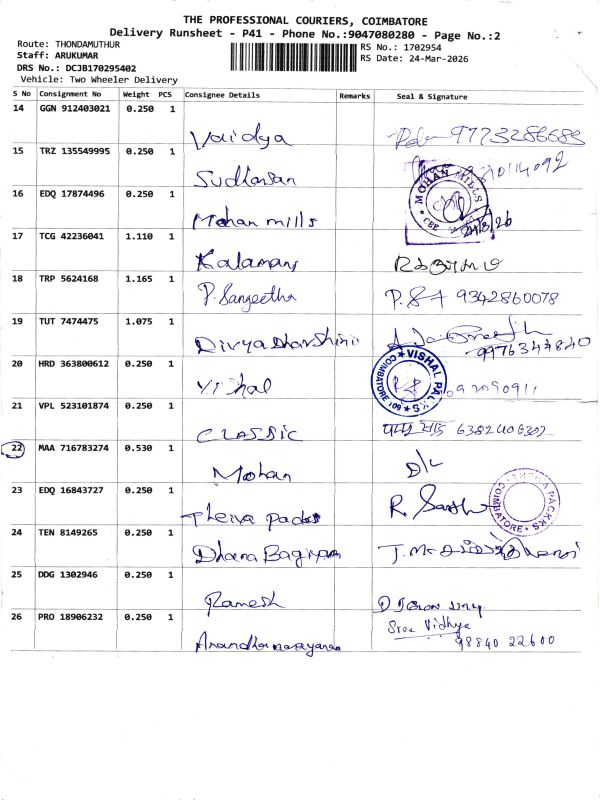 THE PROFESSIONAL COURIERS, COIMBATORE
Delivery Runsheet - P41 - Phone No.:9047080280 - Page No.:2
Route: THONDAMUTHUR
Staff: ARUKUMAR
DRS No.: DCJB170295402
Vehicle: Two Wheeler Delivery
RS No.: 1702954
RS Date: 24-Mar-2026
S No Consignment No Weight PCS Consignee Details Remarks Seal & Signature
14 GGN 912403021 0.250 1 Vaidya
15 TRZ 135549995 0.250 1 Sudharsan
16 EDQ 17874496 0.250 1 Mohan mills MOHAN MILLS CBE 24/3/26
17 TCG 42236041 1.110 1 Kalamani
18 TRP 5624168 1.165 1 P. Sangeetha 9342860078
19 TUT 7474475 1.075 1 Divya Dharshini 9976344840
20 HRD 363800612 0.250 1 Vishal VISHAL PACKS COIMBATORE
21 VPL 523101874 0.250 1 CLASSIC
22 MAA 716783274 0.530 1 Mohan D/L
23 EDQ 16843727 0.250 1 Theiva packs COIMBATORE
24 TEN 8149265 0.250 1
25 DDG 1302946 0.250 1 Ramesh
26 PRO 18906232 0.250 1 Sree Vidhya
98840 22600